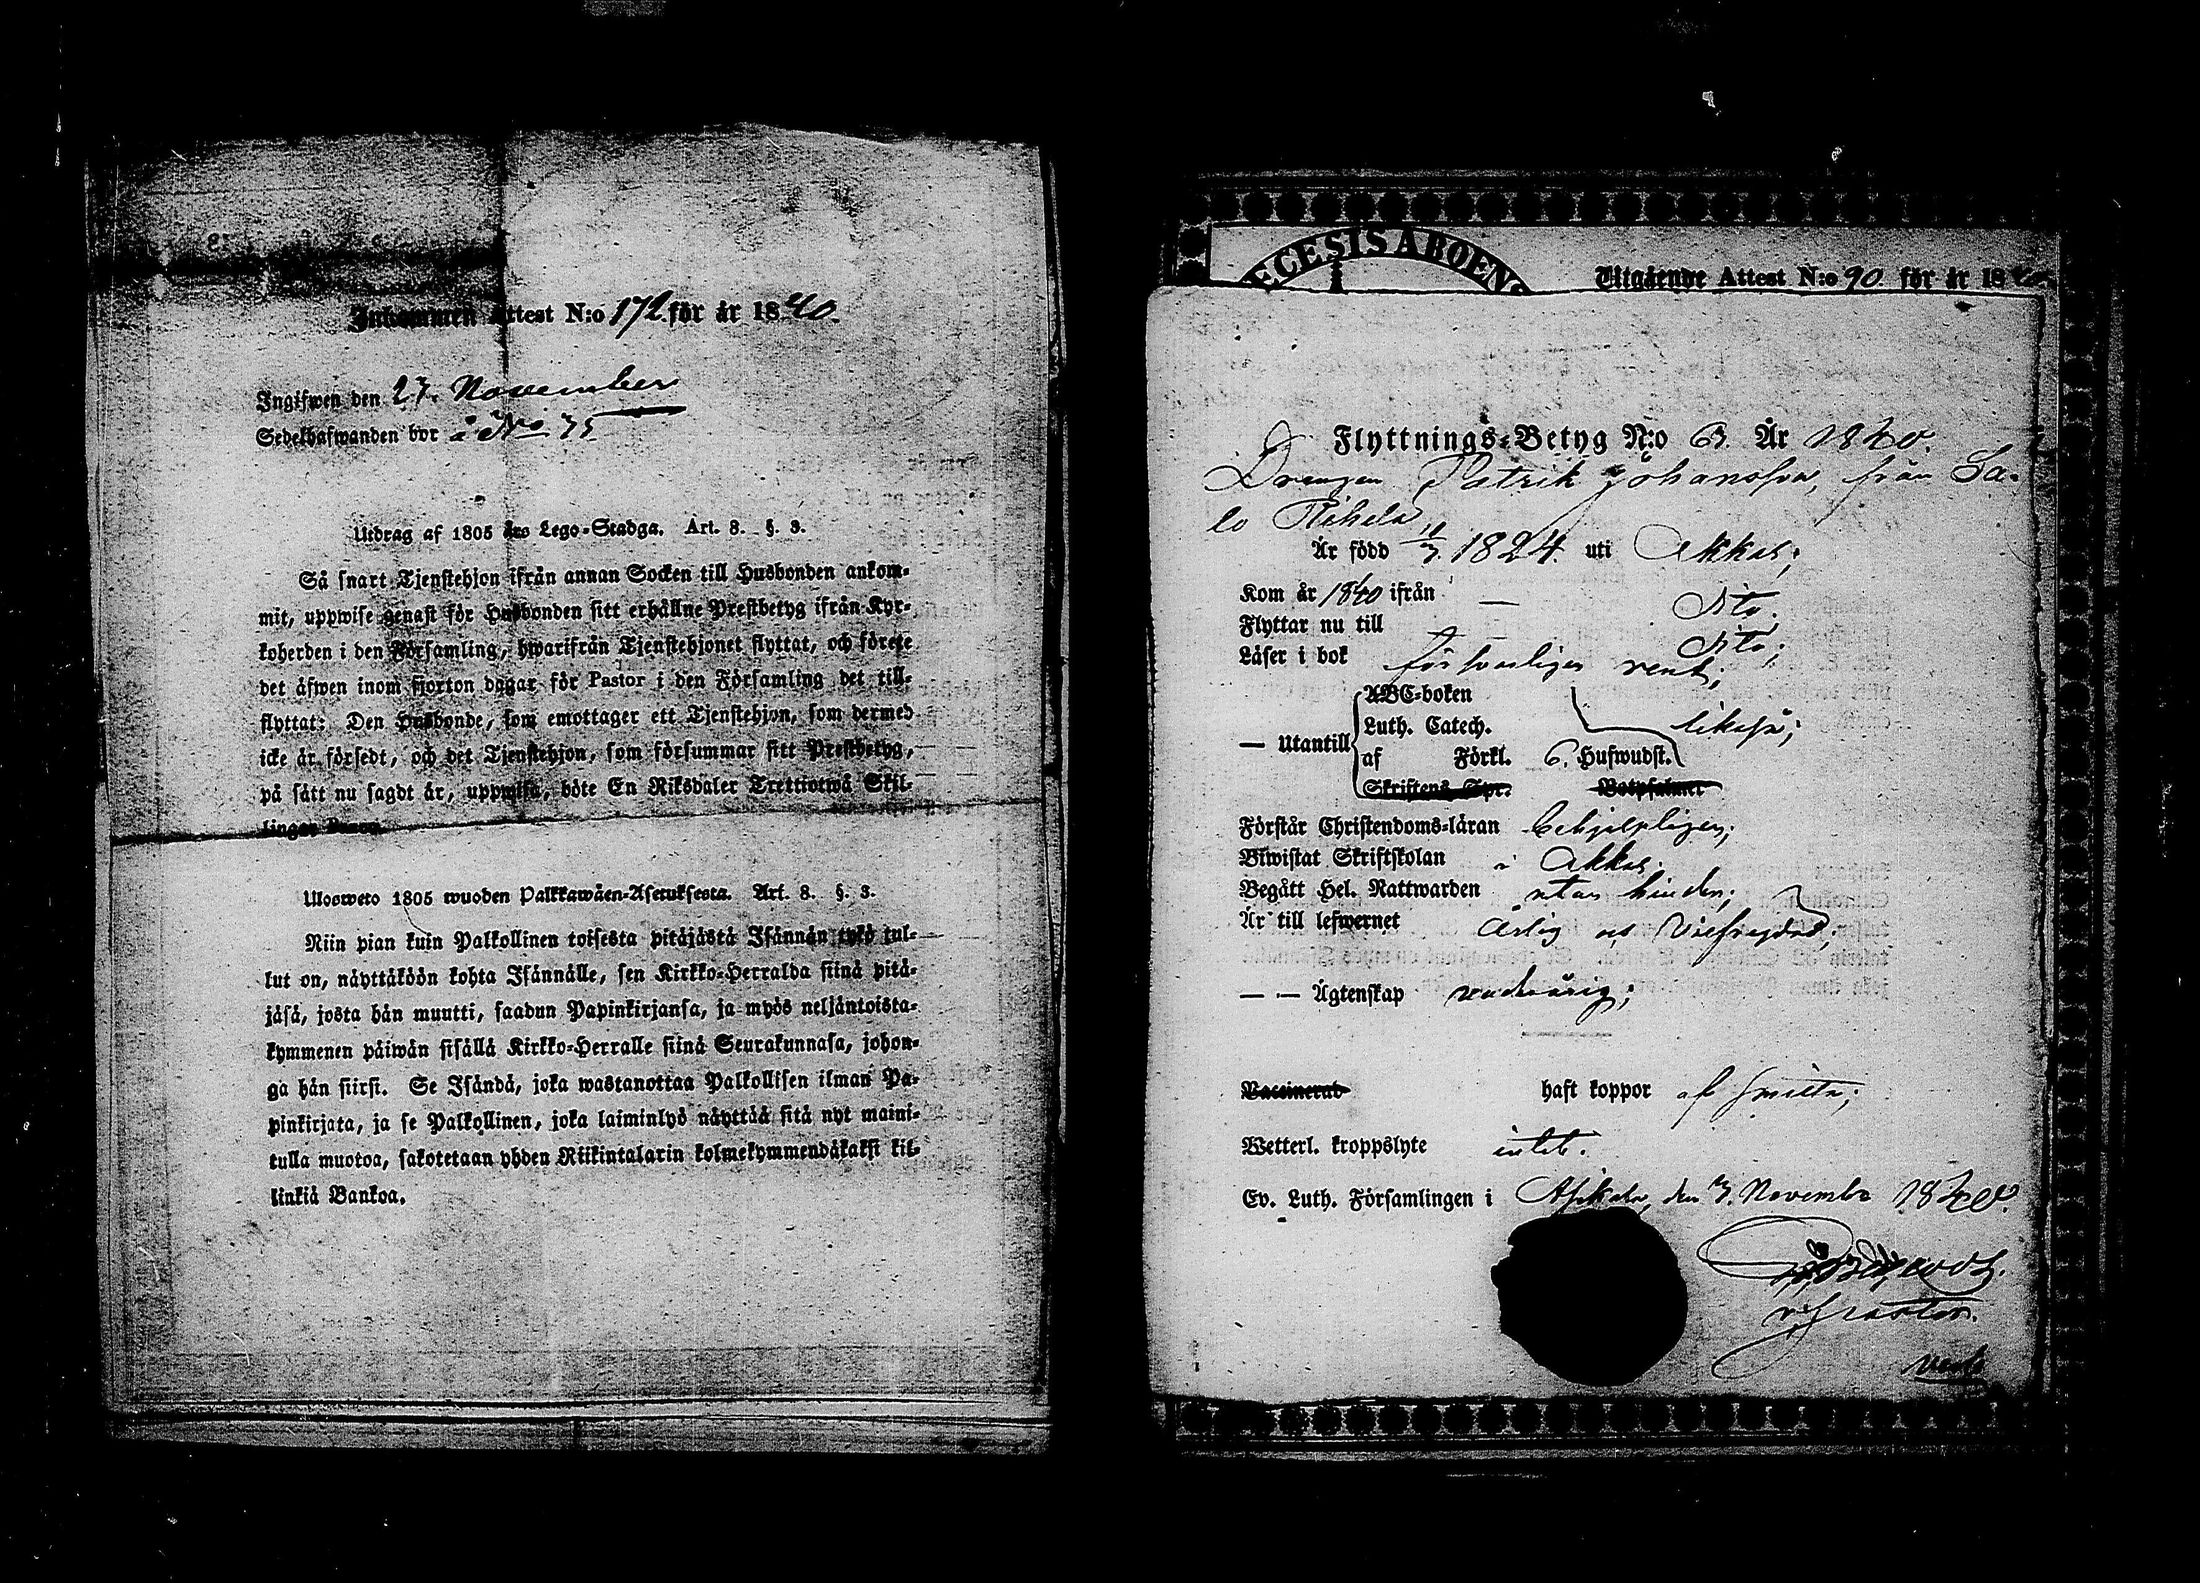 Inkommen Attest N:o 172. för år 1840.
Ingifwen den 27. November
Sedelhafwanden bor i No 75
Utdrag af 1805 års Lego-Stadga. Art. 8. §. 3.
Så snart Tjenstehjon ifrån annan Socken till Husbonden ankom-
mit, uppwise genast för Husbonden sitt erhållne Prestbetyg ifrån Kyr-
koherden i den Församling, hwarifrån Tjenstehjonet flyttat, och förete
det äfwen inom fjorton dagar för Pastor i den Församling det till-
flyttat: Den Husbonde, som emottager ett Tjenstehjon, som dermed
icke är försedt, och det Tjenstehjon, som försummar sitt Prestbetyg,
på sätt nu sagdt är, uppwisa, böte En Riksdaler Trettiotwå Skil-
lingar Banco.
Ulosweto 1805 wuoden Palkkawäen-Asetuksesta. Art. 8. §. 3.
Niin pian kuin Palkollinen toisesta pitäjästä Isännän tykö tul-
lut on, näyttäköön kohta Isännälle, sen Kirkko-Herralda siinä pitä-
jäsä, josta hän muutti, saadun Papinkirjansa, ja myös neljäntoista-
kymmenen päiwän sisällä Kirkko-Herralle siinä Seurakunnasa, johon-
ga hän siirsi. Se Isändä, joka wastanottaa Palkollisen ilman Pa-
pinkirjata, ja se Palkollinen, joka laiminlyö näyttää sitä nyt maini-
tulla muotoa, sakotetaan yhden Riikintalarin kolmekymmendäkaksi kil-
linkiä Bankoa.
ECESIS ABOENS
Utgående Attest N:o 90. för år 1840.
Flyttnings-Betyg N:o 63. År 1840.
Drengen Patrik Johansson, från Sa-
lo
Är född 1824. uti Akkas;
Kom år 1840 ifrån — Dto.
Flyttar nu till Dto;
Läser i bok försvarligen rent;
— Utantill
ABC-boken
Luth. Catech. likaså;
af Förkl. 6. Hufwudst.
Skriftens Spr. Botpsalmer
Förstår Christendoms-läran behjelpligen;
Biwistat Skriftskolan i Akkas;
Begått Hel. Nattwarden utan hinder;
Är till lefwernet ärlig och
— — Ägtenskap
Vaccinerad haft koppor af
Wetterl. kroppslyte intet.
Ev. Luth. Församlingen i den 3. November 1840.
v. Pastor.